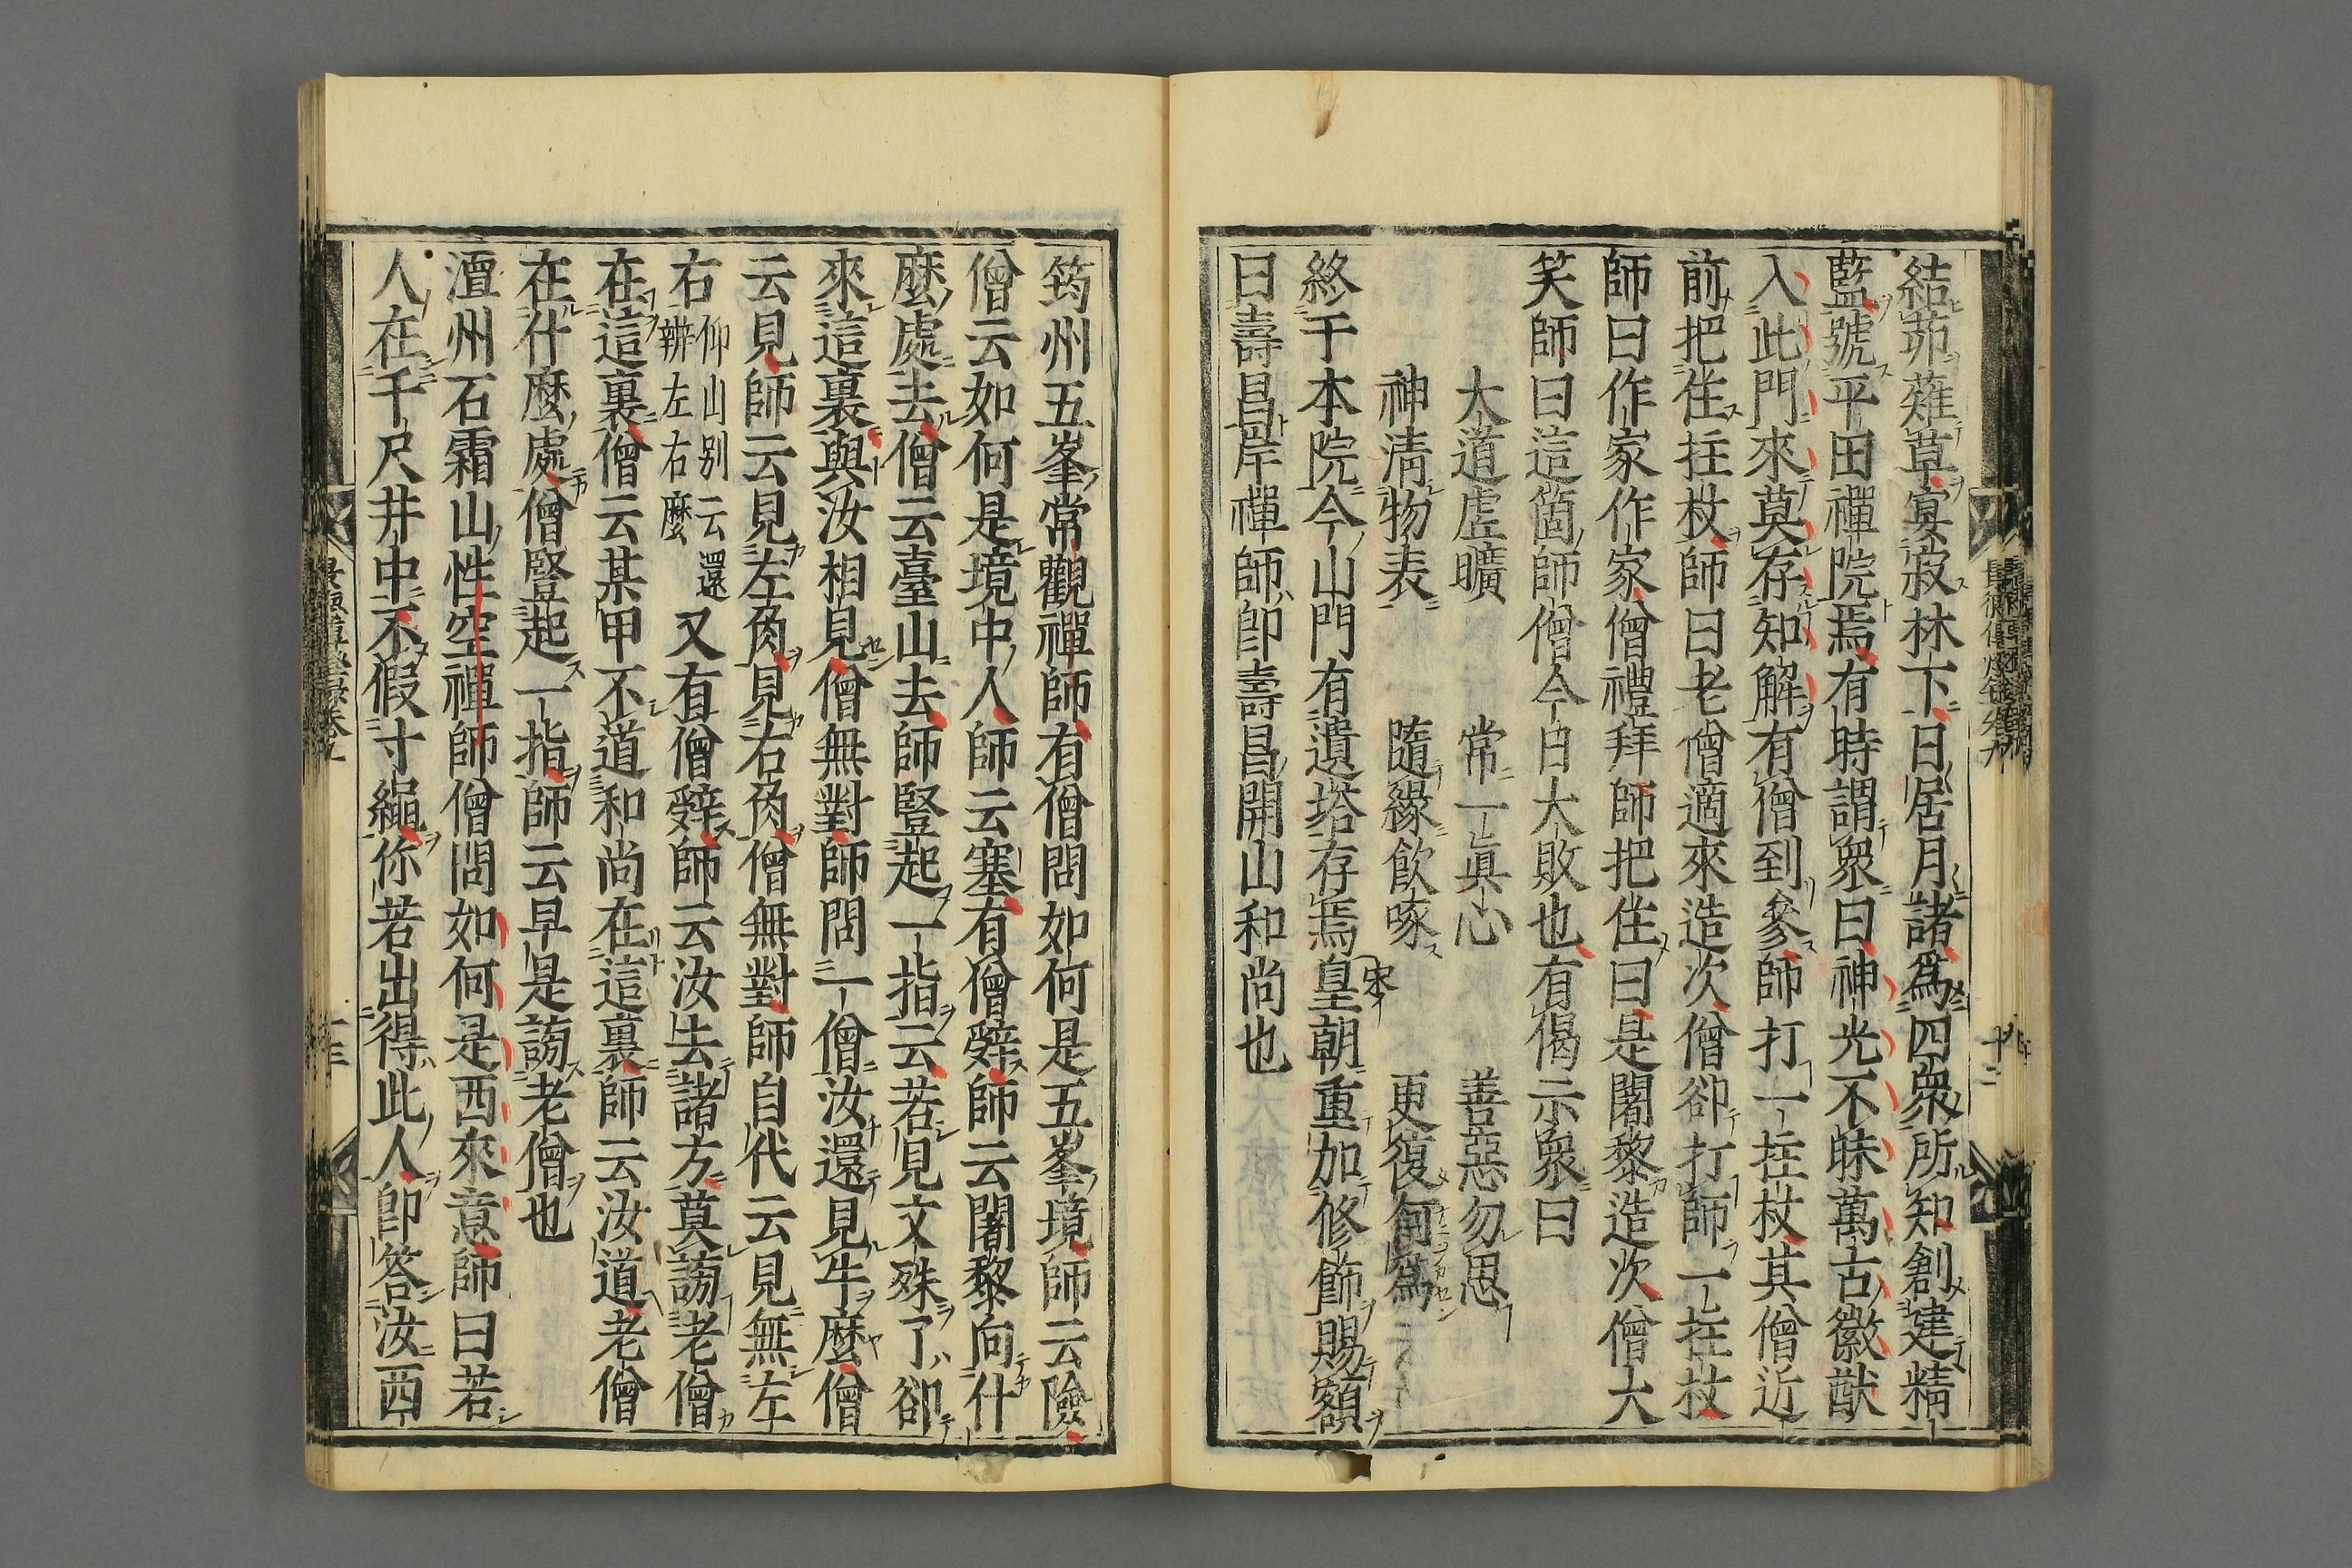 結茆薙草宴寂林下日居月諸爲四衆所知創建精
藍號平田禪院焉有時謂衆曰神光不昧萬古徽猷
入此門來莫存知解有僧到參師打一拄杖其僧近
前把住拄杖師曰老僧適來造次僧卻打師一拄杖
師曰作家作家僧禮拜師把住曰是闍黎造次僧大
笑師曰這箇師僧今日大敗也有偈示衆曰
大道虛曠　常一眞心　善惡勿思
神淸物表　隨緣飮啄　更復何爲
終于本院今山門有遺塔存焉皇朝重加修飾賜額
宋
曰壽昌岸禪師卽壽昌開山和尚也
筠州五峯常觀禪師有僧問如何是五峯境師云險
僧云如何是境中人師云塞有僧辭師云闍黎向什
麼處去僧云臺山去師豎起一指云若見文殊了卻
來這裏與汝相見僧無對師問一僧汝還見牛麼僧
云見師云見左角見右角僧無對師自代云見無左
右仰山別云還辨左右麼又有僧辭師云汝去諸方莫謗老僧
在這裏僧云某甲不道和尚在這裏師云汝道老僧
在什麼處僧豎起一指師云早是謗老僧也
澶州石霜山性空禪師僧問如何是西來意師曰若
人在千尺井中不假寸繩你若出得此人卽答汝西